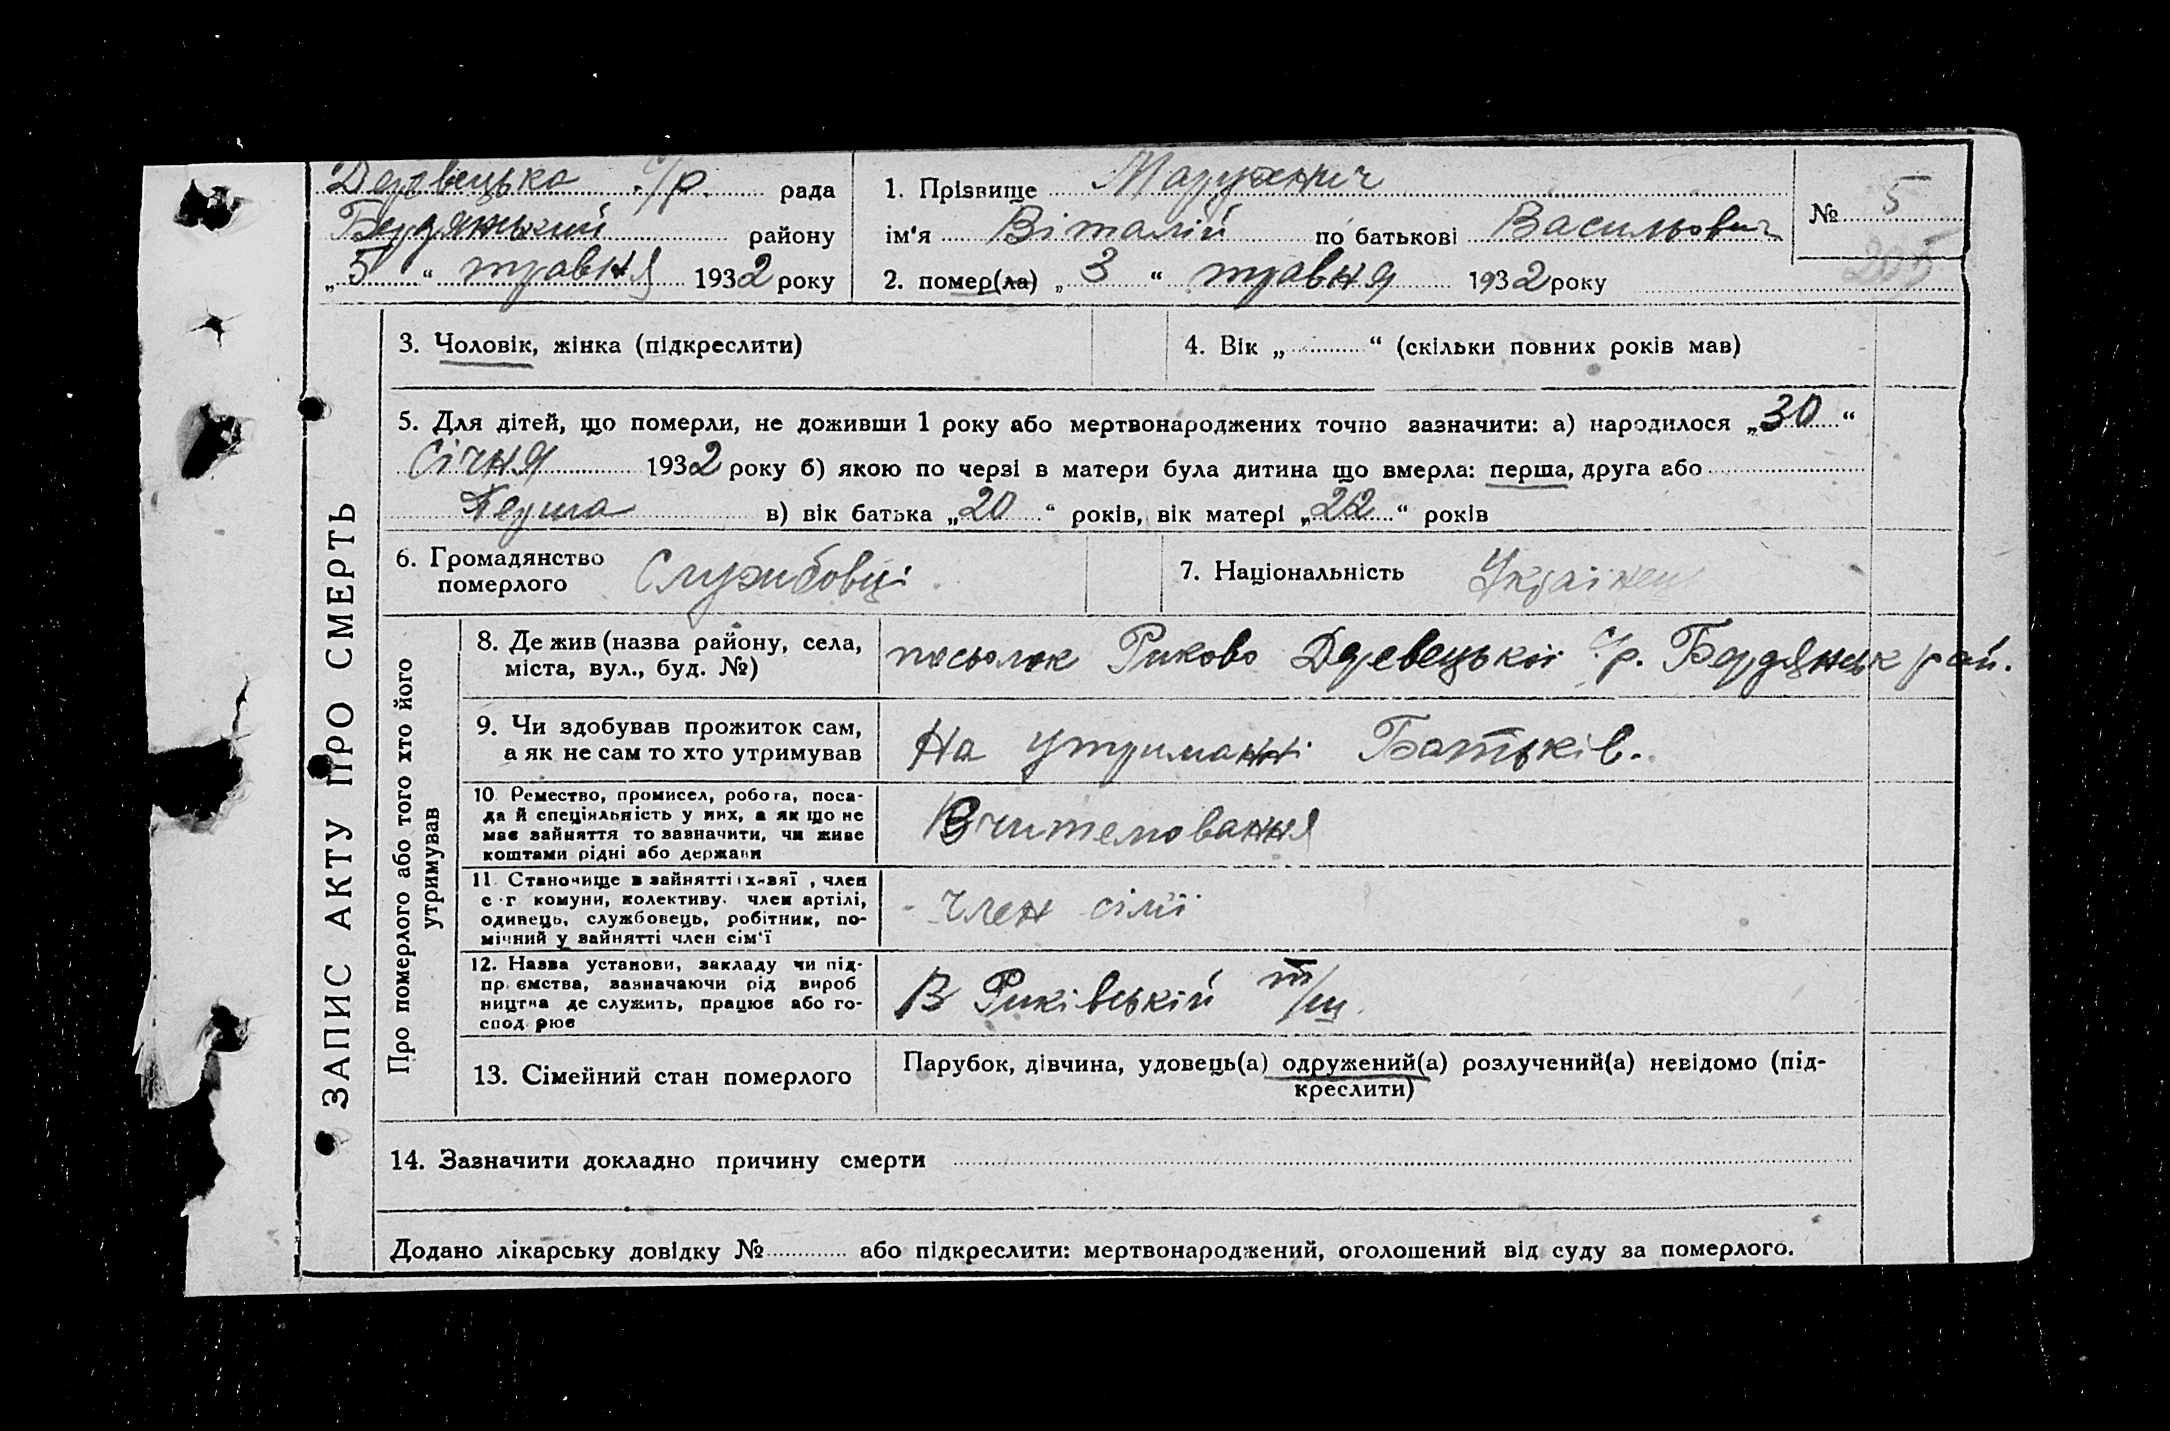 Деревецька с/р. рада
Бердянський району
„5“ травня 1932 року
1. Прізвище Маружнич
ім'я Віталій по батькові Васильович
2. помер(ла) „3“ травня 1932 року
№ 5
205
ЗАПИС АКТУ ПРО СМЕРТЬ
3. Чоловік, жінка (підкреслити)
4. Вік „ “ (скільки повних років мав)
5. Для дітей, що померли, не доживши 1 року або мертвонароджених точно зазначити: а) народилося „30“
Січня 1932 року б) якою по черзі в матери була дитина що вмерла: перша, друга або
Перша в) вік батька „20“ років, вік матері „22“ років
6. Громадянство
померлого
Службовці
7. Національність Українец
Про померлого або того хто його
утримував
8. Де жив (назва району, села,
міста, вул., буд. №)
посьолок Риково Деревецької с/р. Бердянськ рай.
9. Чи здобував прожиток сам,
а як не сам то хто утримував
На утриманні Батьків.
10. Ремество, промисел, робота, поса-
да й спеціяльність у них, а як що не
має зайняття то зазначити, чи живе
коштами рідні або держави
Вчителювання
11. Становище в зайнятті: х-зяї , член
с-г комуни, колективу. член артілі,
одинець, службовець, робітник, по-
мічний у зайнятті член сім'ї
член сімї
12. Назва установи, закладу чи під-
пр ємства, зазначаючи рід вироб
ництва де служить, працює або го-
спод рює
В Риківській т/ш.
13. Сімейний стан померлого
Парубок, дівчина, удовець(а) одружений(а) розлучений(а) невідомо (під-
креслити)
14. Зазначити докладно причину смерти
Додано лікарську довідку № або підкреслити: мертвонароджений, оголошений від суду за померлого.